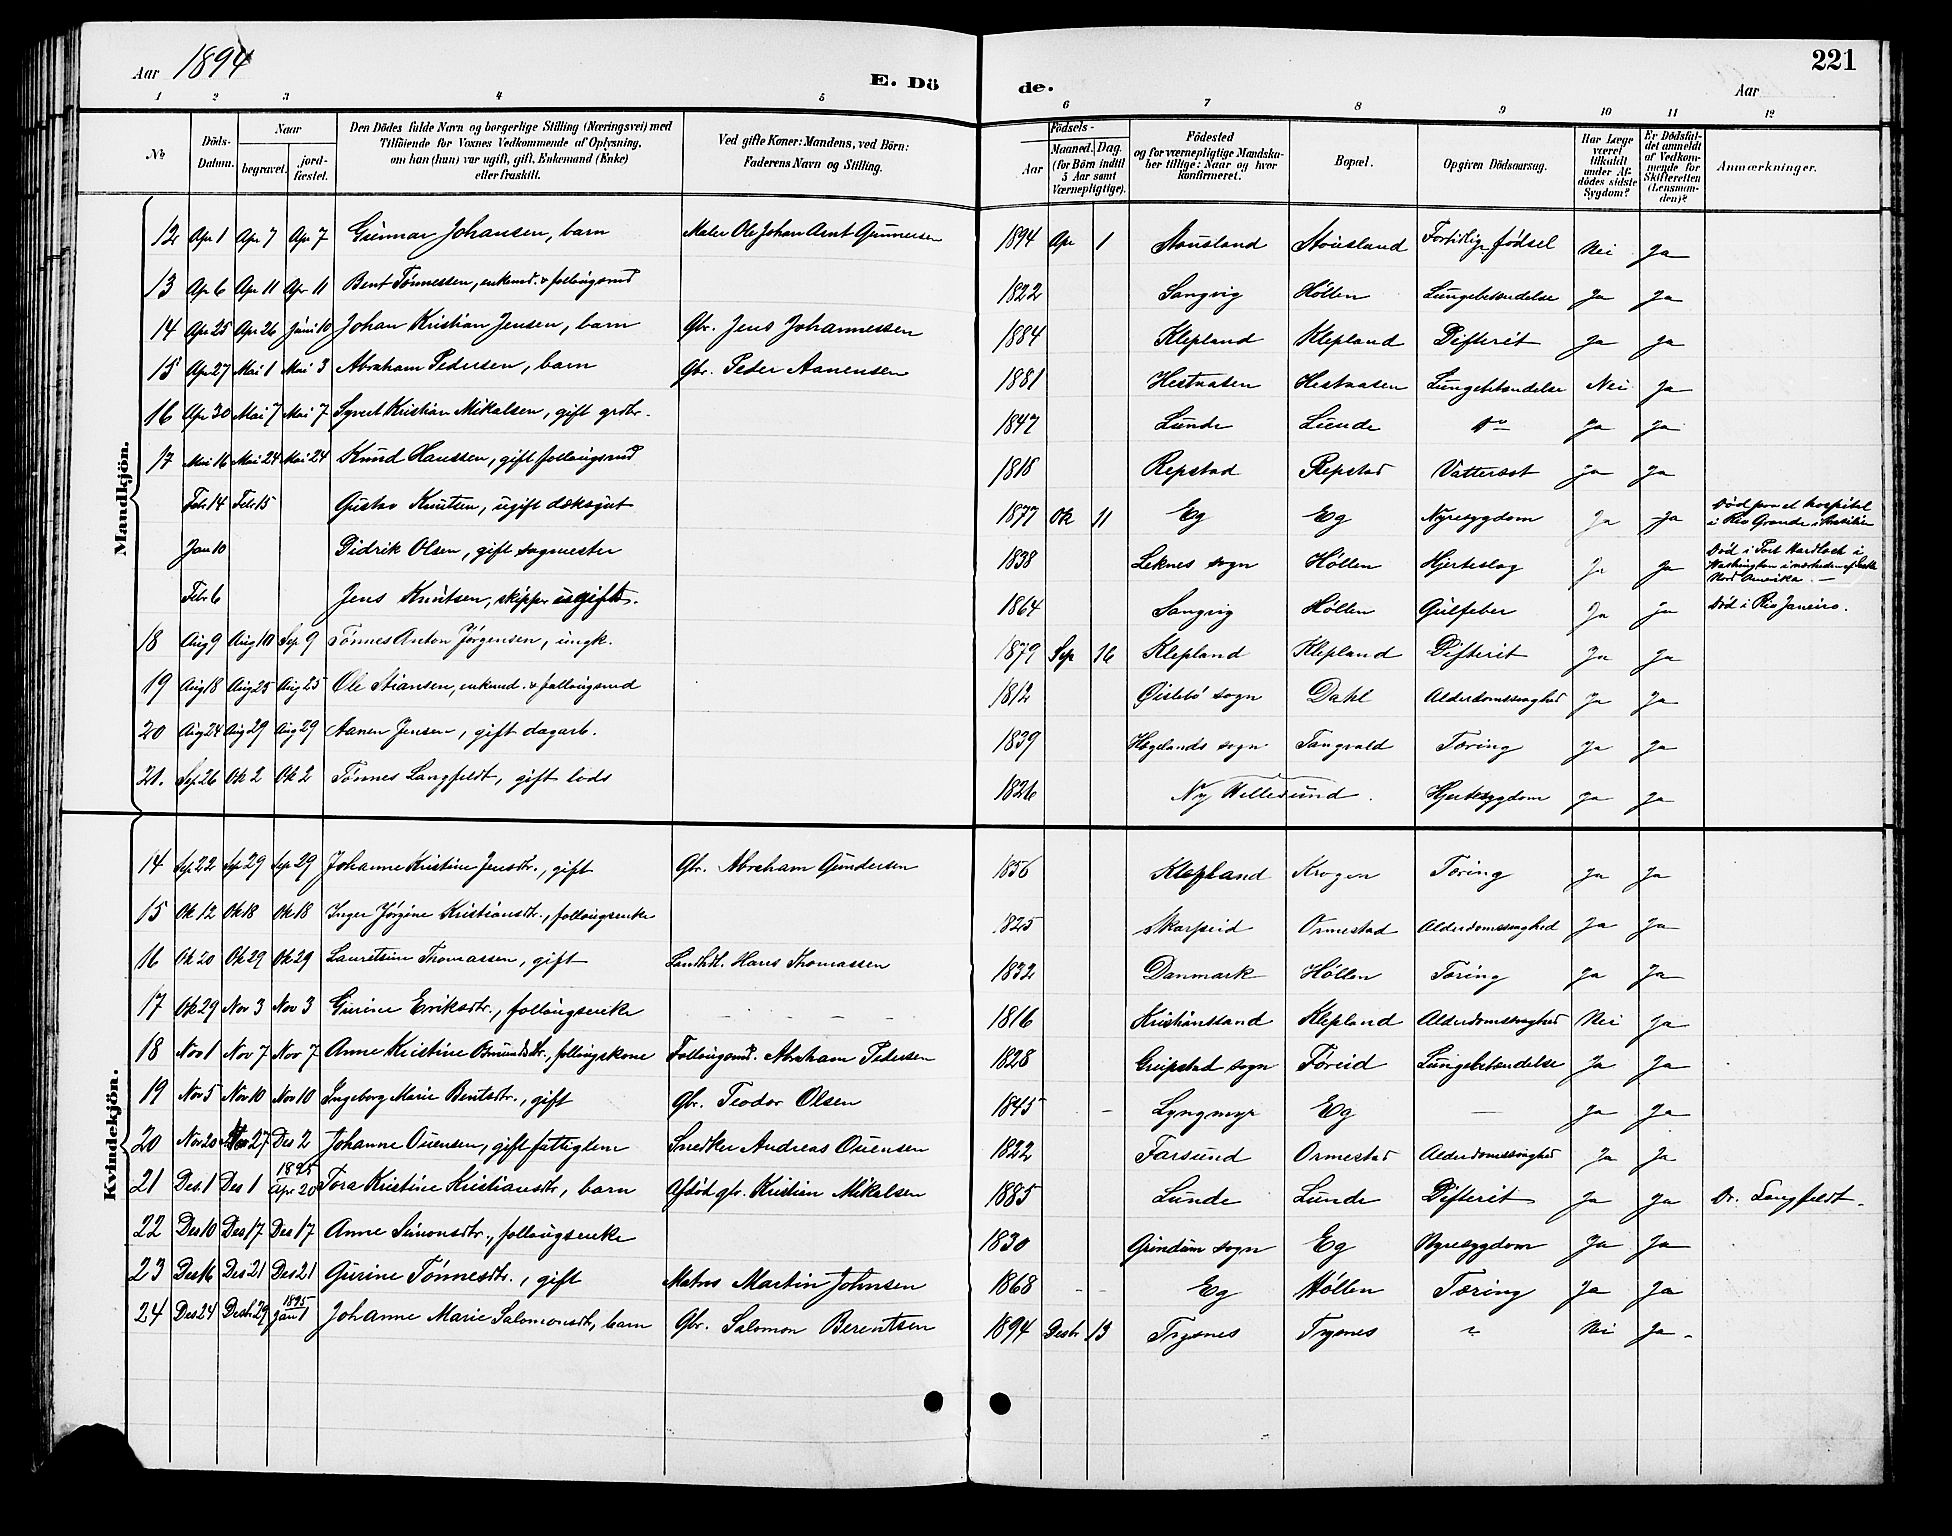 Aar 1894
E. Dö
de.
Aar
221
1 2 3 4 5 6 7 8 9 10 11 12
No
Döds-Datum.
Naar
begravet.
jord-fæstet.
Den Dödes fulde Navn og borgerlige Stilling (Næringsvei) med
Tilföiende for Voxnes Vedkommende af Oplysning,
om han (hun) var ugift, gift, Enkemand (Enke)
eller fraskilt.
Ved gifte Koner: Mandens, ved Börn:
Faderens Navn og Stilling.
Födsels-
Aar
Maaned. Dag.
(for Börn indtil
5 Aar samt
Værnepligtige).
Födested
og for værnepligtige Mandska-
ber tillige: Naar og hvor
konfirmeret.
Bopæl.
Opgiven Dödsaarsag.
Har Læge
været
tilkaldt
under Af-
dödes sidste
Sygdom?
Er Dödsfal-
det anmeldt
af Vedkom-
mende for
Skifteretten
(Lensman-
den)?
Anmærkninger.
Mandkjön.
12 Apr 1 Apr 7 Apr 7 Gunnar Johansen, barn Maler Ole Johan Arnt Gunnersen 1894 Apr 1 Stousland Stousland Fortidlig fødsel Nei Ja
13 Apr 6 Apr 11 Apr 11 Bent Tønnessen, enkemd. & follaugsmd 1822 Langvig Høllen Lungebetændelse Ja Ja
14 Apr 25 Apr 26 Juni 10 Johan Kristian Jensen, barn Gbr. Jens Johannessen 1884 Klepland Klepland Difterit Ja Ja
15 Apr 27 Mai 1 Mai 3 Abraham Pedersen, barn Gbr. Peder Aanensen 1881 Hestaasen Hestaasen Lungebetændelse Nei Ja
16 Apr 30 Mai 7 Mai 7 Syvert Kristian Mikalsen, gift grdbr. 1847 Lunde Lunde do Ja Ja
17 Mai 16 Mai 24 Mai 24 Knud Hanssen, gift follaugsmd 1818 Repstad Repstad Vattersot Ja Ja
Febr 14 Febr 15 Gustav Knutsen, ugift dæksgut 1877 Ok 11 Eg Eg Nyresygdom Ja Ja Død paa et hospital
i Rio Grande i Brasilien
Jan 10 Didrik Olsen, gift sagmester 1838 Leknes sogn Høllen Hjerteslag Ja Ja Død i Port Hardlock i
Washington i nærheden af
Nord Amerika. —
Febr 6 Jens Knutsen, skipper ugift. 1864 Langvig Høllen Gulfeber Ja Ja Død i Rio Janeiro.
18 Aug 9 Aug 10 Sep 9 Tønnes Anton Jørgensen, ungk. 1879 Sep 16 Klepland Klepland Difterit Ja Ja
19 Aug 18 Aug 25 Aug 25 Ole Stiansen, enkemd. & follaugsmd 1812 Øislebø sogn Dahl Alderdomssvaghed Ja Ja
20 Aug 24 Aug 29 Aug 29 Aanen Jensen, gift dagarb. 1839 Hægelands sogn Tangvald Tæring Ja Ja
21. Sep 26 Ok 2 Ok 2 Tønnes Langfeldt, gift lods 1826 Ny Hellesund. Hjertesygdom Ja Ja
Kvindekjön.
14 Sep 22 Sep 29 Sep 29 Johanne Kristine Jensdtr., gift Gbr. Abraham Gundersen 1856 Klepland Krogen Tæring Ja Ja
15 Ok 12 Ok 18 Ok 18 Inger Jørgine Kristiansdtr., follaugsenke 1825 Skarpeid Ormestad Alderdomssvaghed Ja Ja
16 Ok 20 Ok 29 Ok 29 Lauretsine Thomassen, gift Landhdl. Hans Thomassen 1832 Danmark Høllen Tæring Ja Ja
17 Ok 29 Nov 3 Nov 3 Gurine Eriksdtr., follaugsenke 1816 Kristianssand Klepland Alderdomssvaghed Nei Ja
18 Nov 1 Nov 7 Nov 7 Anne Kristine Osmundsdtr., follaugskone Follaugsmd. Abraham Pedersen 1828 Greipstad sogn Føreid Lungebetændelse Ja Ja
19 Nov 5 Nov 10 Nov 10 Ingeborg Marie Bentsdtr., gift Gbr. Teodor Olsen 1845 - Lyngmyr Eg — Ja Ja
20 Nov 20 Nov 27 Des 2 Johanne Ouensen, gift fattiglem Snedker Andreas Ouensen 1822 Farsund Ormestad Alderdomssvaghed Ja Ja
21 Des. 1 Des 1 1895 Apr 20 Tora Kristine Kristiansdtr, barn Afdød gbr. Kristian Mikalsen 1885 Lunde Lunde Difterit Ja Ja Dr. Langfeldt.
22 Des 10 Des 17 Des 17 Anne Simonsdtr., follaugsenke 1830 Grindum sogn Eg Nyresygdom Ja Ja
23 Des 16 Des 21 Des 21 Gurine Tønnesdtr., gift Matros Martin Johnsen 1868 Eg Høllen Tæring Ja Ja
24 Des 24 Desbr 29 1895 Jan 1 Johanne Marie Salomonsdtr, barn Gbr. Salomon Berentsen 1894 Desbr 13 Trysnes Trysnes " Nei Ja